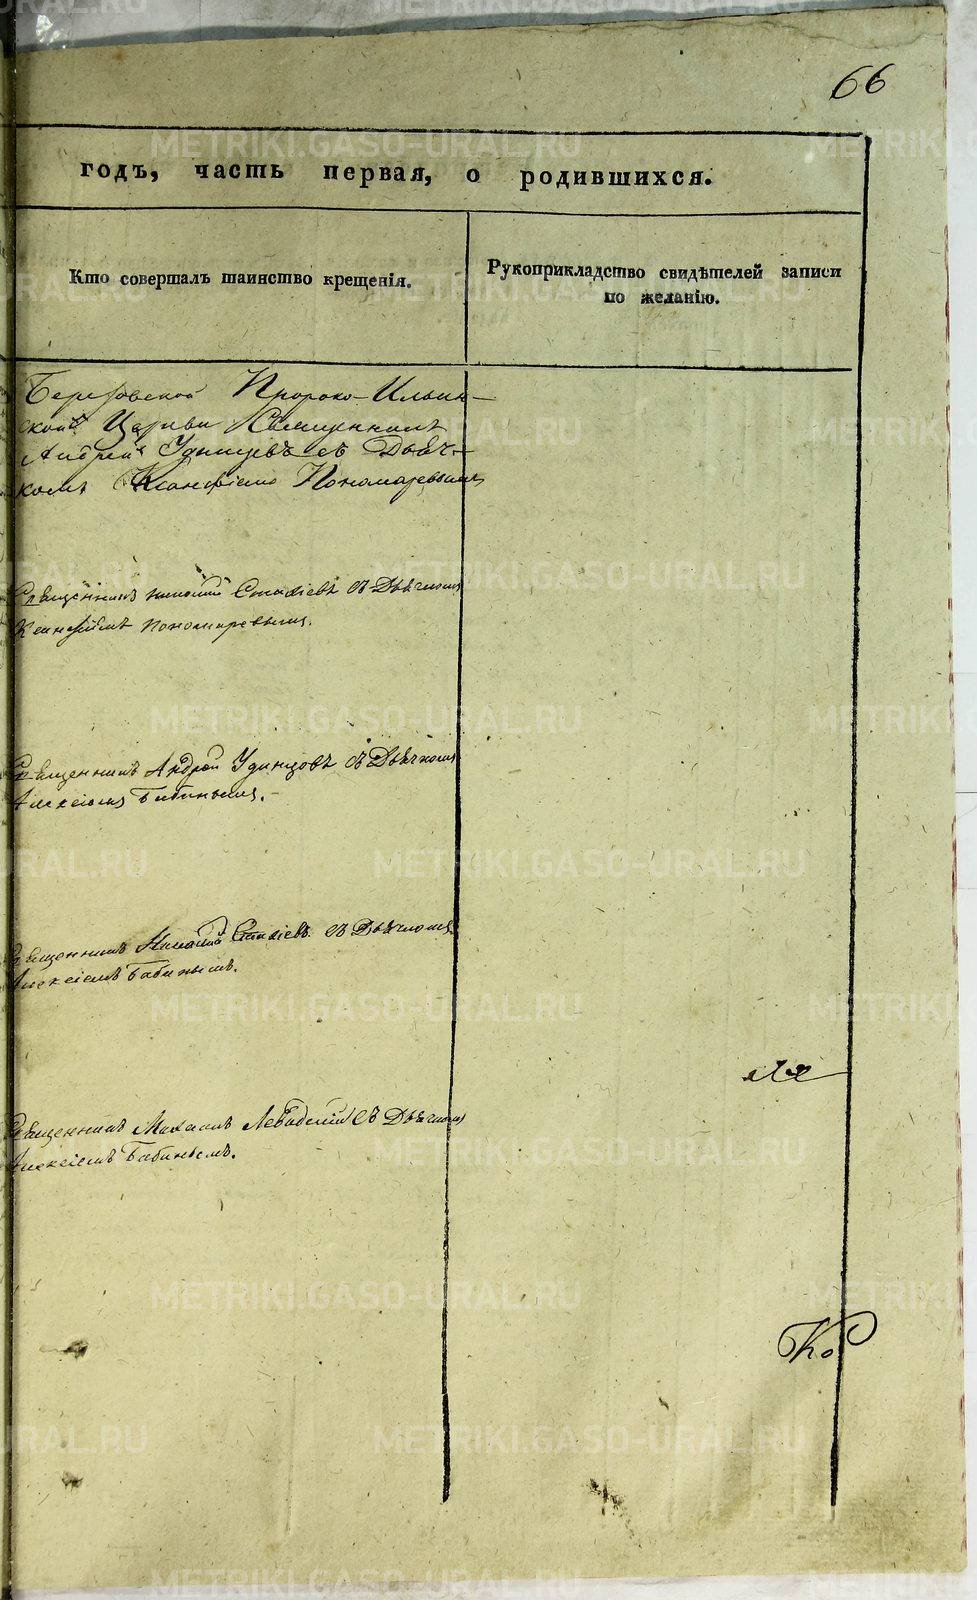 66
годъ, часть первая, о родившихся.
Кто совершалъ таинство крещенія.
Рукоприкладство свидѣтелей записи
по желанію.
Березовской Пророко-Ильин-
ской Церкви Священникъ
Андрей Удинцевъ съ Дьяч-
комъ Ксанфіемъ Пономаревымъ
Священникъ Николай Стахіевъ съ Дьячкомъ
Ксанфіемъ Пономаревымъ.
Священникъ Андрей Удинцовъ съ Дьячкомъ
Алексіемъ Бабинымъ.
Священникъ Николай Стахіевъ съ Дьячкомъ
Алексіемъ Бабинымъ.
Священникъ Михаилъ Левадскій съ Дьячкомъ
Алексіемъ Бабинымъ.
Ко
METRIKI.GASO-URAL.RU